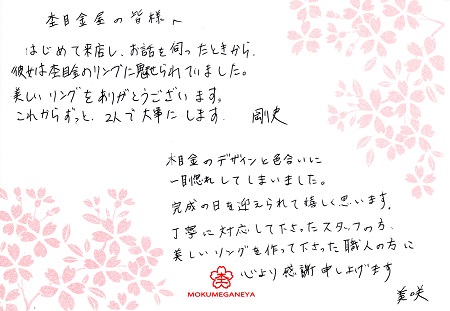 杢目金屋の皆様へ
はじめて来店し、お話を伺ったときから、
彼女は杢目金のリングに魅せられていました。
美しいリングをありがとうございます。
これからずっと、2人で大事にします。 剛史
木目金のデザインと色合いに
一目惚れしてしまいました。
完成の日を迎えられて嬉しく思います。
丁寧に対応して下さったスタッフの方、
美しいリングを作って下さった職人の方に
心より感謝申し上げます
美咲
MOKUMEGANEYA